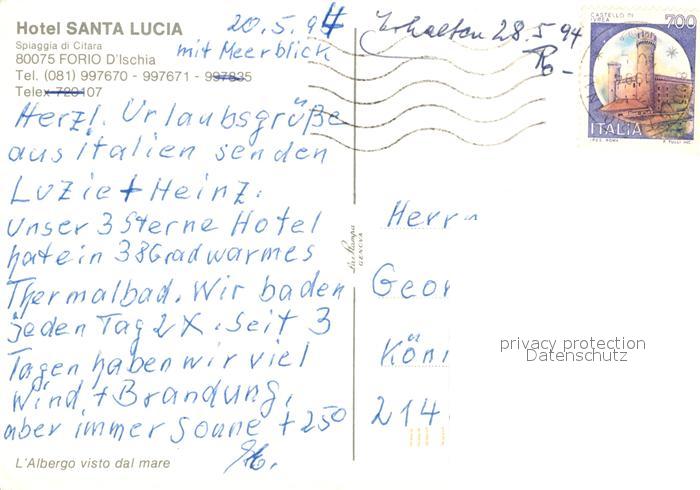 Hotel SANTA LUCIA
Spiaggia di Citara
80075 FORIO D'Ischia
Tel. (081) 997670 - 997671 - 997835
Telex 720107
20.5.94
mit Meerblick
Herzl. Urlaubsgrüße
aus Italien senden
Luzie + Heinz.
Unser 3 Sterne Hotel
hat ein 38 Grad warmes
Thermalbad. Wir baden
jeden Tag 2 X. Seit 3
Tagen haben wir viel
Wind + Brandung,
aber immer Sonne + 25°
L'Albergo visto dal mare
La Stampa
GENOVA
Erhalten 28.5.94
CASTELLO DI
IVREA
700
ITALIA
Herrn
Geor
Köni
214
privacy protection
Datenschutz